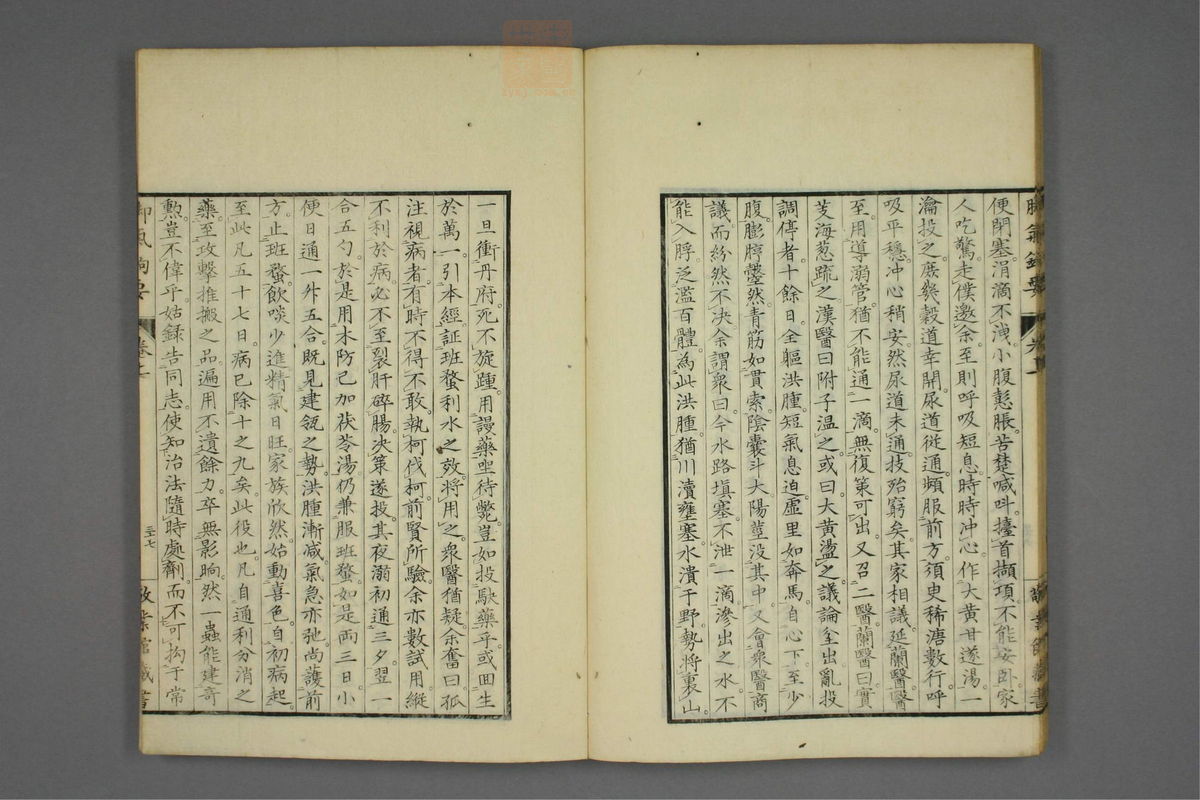 便閉塞涓滴不洩小腹膨脹苦楚喊叫擡首擷項不能安臥家
人吃驚走僕邀余至則呼吸短息時時沖心作大黃甘遂湯一
瀹投之庶幾穀道幸開尿道從通頻服前方須臾稀溏數行呼
吸平穩沖心稍安然尿道未通技殆窮矣其家相議延蘭醫醫
至用導溺管猶不能通一滴無復策可出又召二醫蘭醫曰實
芰海葱疏之漢醫曰附子溫之或曰大黃盪之議論全出亂投
調停者十餘日全軀洪腫短氣息迫虛里如奔馬自心下至少
腹膨脝鼟然青筋如貫索陰囊斗大陽莖没其中又會衆醫商
議而紛然不决余謂衆曰今水路填塞不泄一滴滲出之水不
能入脬泛濫百體為此洪腫猶川瀆壅塞水潰于野勢將裏山
一旦衝丹府死不旋踵用謾藥坐待斃豈如投駃藥乎或回生
於萬一引本經証班蝥利水之效將用之衆醫猶疑余奮曰孤
注視病者有時不得不敢執柯伐柯前賢所驗余亦數試用縱
不利於病必不至裂肝碎腸决策遂投其夜溺初通三夕翌一
合五勺於是用木防己加茯苓湯仍兼服班蝥如是両三日小
便日通一升五合既見建瓴之勢洪腫漸减氣急亦弛尚護前
方止班蝥飲啖少進精氣日旺家族欣然姑動喜色自初病起
至此凡五十七日病已除十之九矣此役也凡自通利分消之
藥至攻擊推搬之品遍用不遺餘力卒無影晌然一蟲能建奇
勲豈不偉乎姑録告同志使知治法隨時處劑而不可拘于常
脚氣鉤要
卷之
三十七